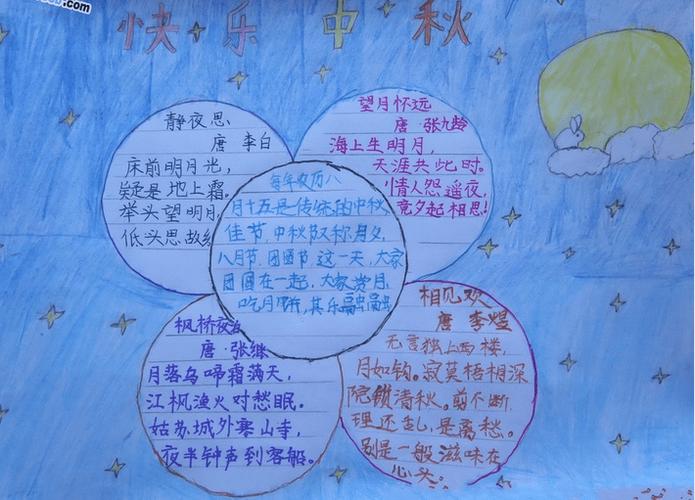 .com
快乐中秋
静夜思
唐 李白
床前明月光，
疑是地上霜。
举头望明月，
低头思故
望月怀远
唐 张九龄
海上生明月，
天涯共此时。
情人怨遥夜，
竟夕起相思！
每年农历八
月十五是传统的中秋
佳节，中秋又称月夕，
八月节，团圆节，这一天，大家
团圆在一起，大家赏月，
吃月饼，其乐融融
枫桥夜泊
唐·张继
月落乌啼霜满天，
江枫渔火对愁眠。
姑苏城外寒山寺，
夜半钟声到客船。
相见欢
唐 李煜
无言独上西楼，
月如钩。寂寞梧桐深
院锁清秋。剪不断，
理还乱，是离愁。
别是一般滋味在
心头。